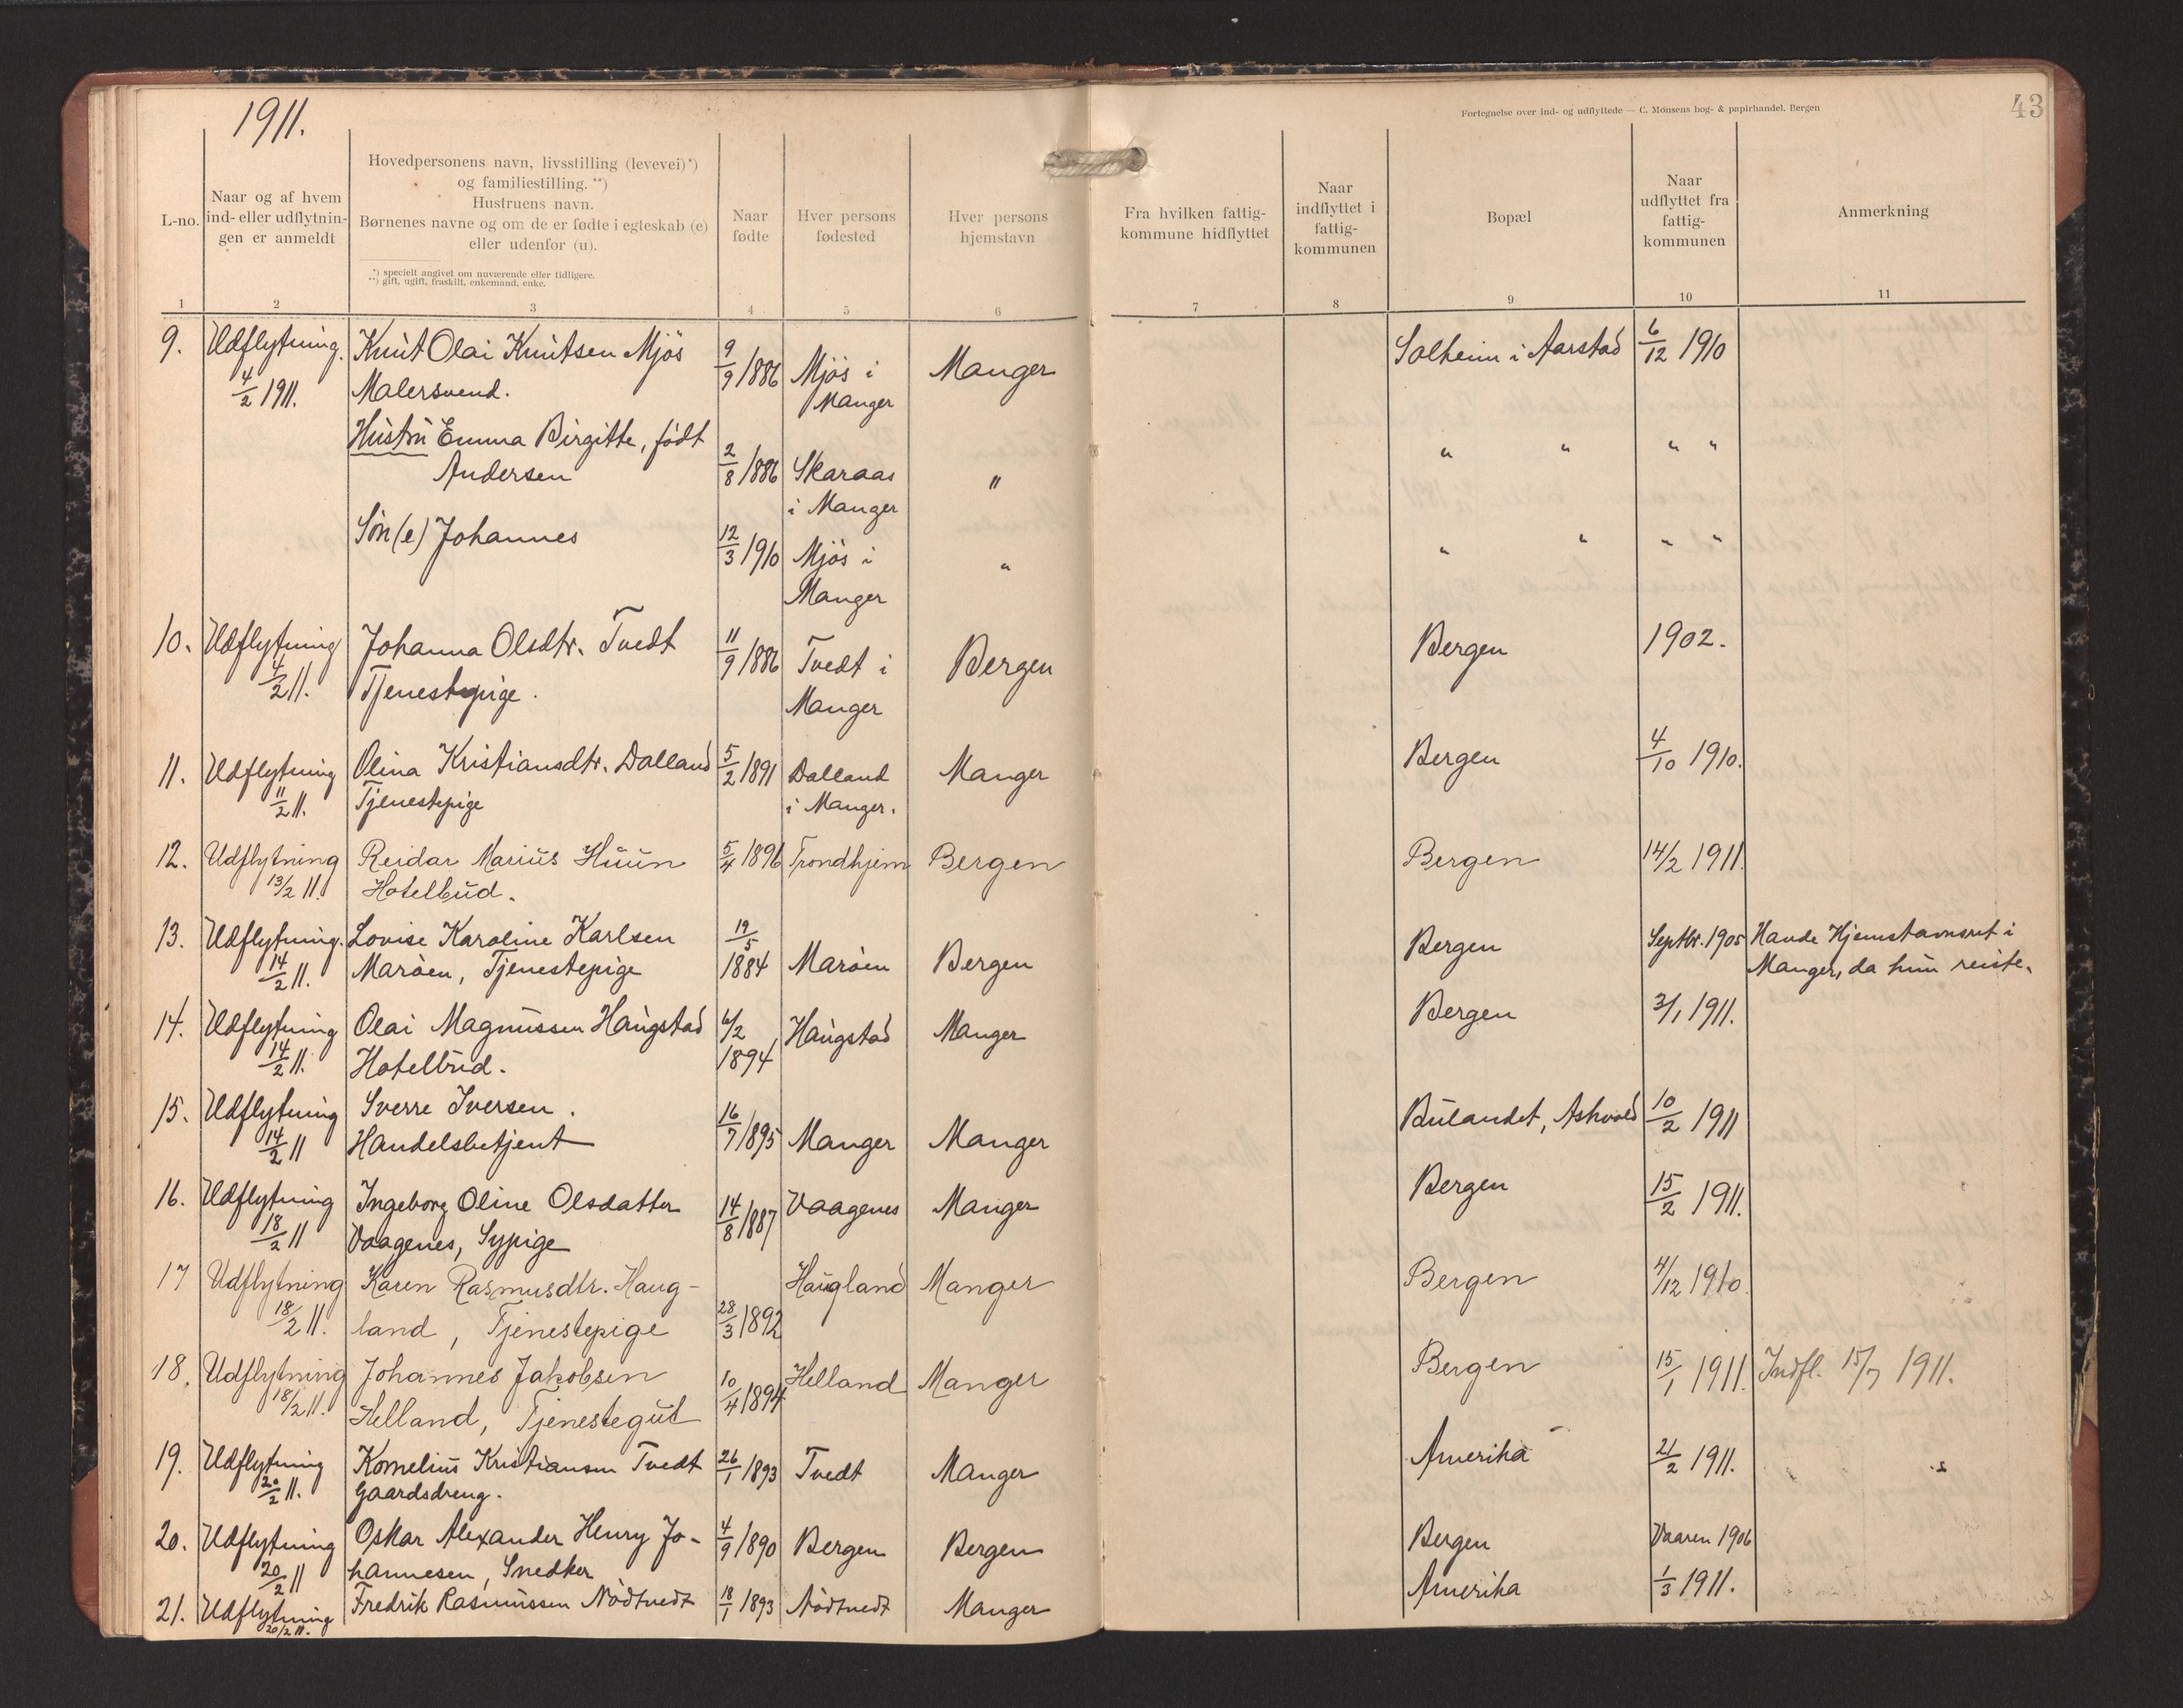 1911.
Fortegnelse over ind- og udflyttede — C. Monsens bog- & papirhandel. Bergen
43
L-no.
Naar og af hvem
ind- eller udflytnin-
gen er anmeldt
Hovedpersonens navn, livsstilling (levevei)*)
og familiestilling. **)
Hustruens navn.
Børnenes navne og om de er fødte i egteskab (e)
eller udenfor (u).
*) specielt angivet om nuværende eller tidligere.
**) gift, ugift, fraskilt, enkemand, enke.
Naar
fødte
Hver persons
fødested
Hver persons
hjemstavn
Fra hvilken fattig-
kommune hidflyttet
Naar
indflyttet i
fattig-
kommunen
Bopæl
Naar
udflyttet fra
fattig-
kommunen
Anmerkning
1 2 3 4 5 6 7 8 9 10 11
9. Udflytning. Knut Olai Knutsen Mjös 9/9 1886 Mjös i Manger Solheim i Aarstad 6/12 1910
4/2 1911. Malersvend. Manger
Hustru Emma Birgitte, født 2/8 1886 Skaraas " " " " "
Andersen i Manger
Søn (e) Johannes 12/3 1910 Mjös i " " " " "
Manger
10. Udflytning Johanna Olsdtr. Tvedt 11/9 1886 Tvedt i Bergen Bergen 1902.
4/2 11. Tjenestepige. Manger
11. Udflytning Olina Kristiansdtr. Dalland 5/2 1891 Dalland Manger Bergen 4/10 1910.
11/2 11. Tjenestepige i Manger.
12. Udflytning Reidar Marius Huun 5/4 1896 Trondhjem Bergen Bergen 14/2 1911.
13/2 11. Hotelbud.
13. Udflytning. Lovise Karoline Karlsen 19/5 Bergen Septbr. 1905 Havde Hjemstavnsret i
14/2 11. Marøen, Tjenestepige 1884 Marøen Bergen Manger, da hun reiste.
14. Udflytning Olai Magnussen Haugstad 6/2 Haugstad Manger Bergen 3/1 1911.
14/2 11. Hotelbud. 1894
15. Udflytning Sverre Iversen. 16/7 1895 Manger Manger Bulandet, Askvold 10/2 1911
14/2 11 Handelsbetjent
16. Udflytning Ingeborg Oline Olsdatter 14/8 1887 Vaagenes Manger Bergen 15/2 1911.
18/2 11 Vaagenes, Sypige
17 Udflytning Karen Rasmusdtr. Haug- Haugland Manger Bergen 4/12 1910.
18/2 11. land, Tjenestepige 28/3 1892
18. Udflytning Johannes Jakobsen 10/4 1894 Helland Manger Bergen 15/1 1911. Indfl. 15/7 1911.
18/2 11. Helland, Tjenestegut
19. Udflytning Kornelius Kristiansen Tvedt 26/1 1893 Tvedt Manger Amerika 21/2 1911.
20/2 11. Gaardsdreng.
20. Udflytning Oskar Alexander Henry Jo- 4/9 1890 Bergen Bergen Bergen Vaaren 1906
20/2 11 hannesen, Snedker
21. Udflytning Fredrik Rasmussen Nödtvedt 18/1 1893 Nödtvedt Manger Amerika 1/3 1911.
20/2 11.